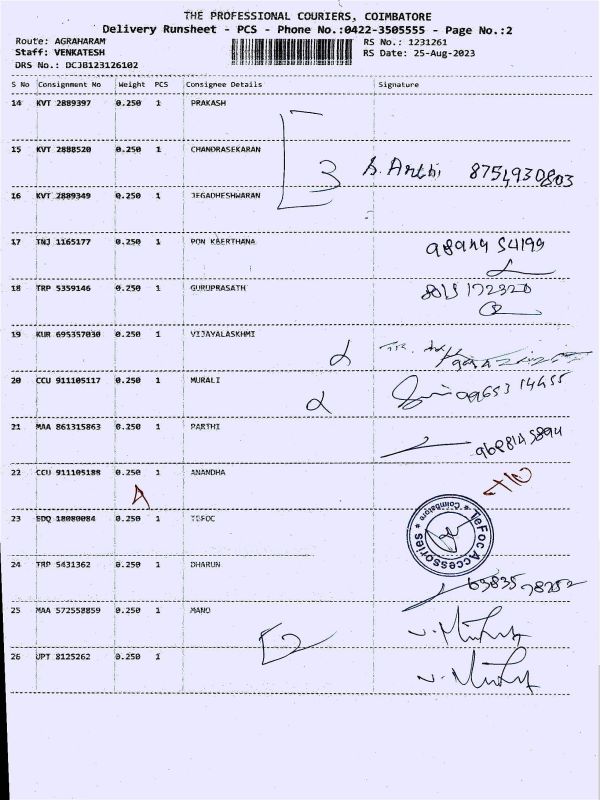 THE PROFESSIONAL COURIERS, COIMBATORE
Delivery Runsheet - PCS - Phone No.:0422-3505555 - Page No.:2
Route: AGRAHARAM RS No.: 1231261
Staff: VENKATESH RS Date: 25-Aug-2023
DRS No.: DCJB123126102
S No Consignment No Weight PCS Consignee Details Signature
14 KVT 2889397 0.250 1 PRAKASH
15 KVT 2888520 0.250 1 CHANDRASEKARAN
3 S. Arthi 8754930803
16 KVT 2889349 0.250 1 JEGADHESHWARAN
17 TNJ 1165177 0.250 1 PON KEERTHANA
18 TRP 5359146 0.250 1 GURUPRASATH 8015172320
19 KUR 695357030 0.250 1 VIJAYALASKHMI
20 CCU 911105117 0.250 1 MURALI
21 MAA 861315863 0.250 1 PARTHI
22 CCU 911105188 0.250 1 ANANDHA
A
23 EDQ 18080084 0.250 1 TEFOC
TeFoc Accessories * Coimbatore *
24 TRP 5431362 0.250 1 DHARUN
63835 78252
25 MAA 572558859 0.250 1 MANO
2
26 UPT 8125262 0.250 1